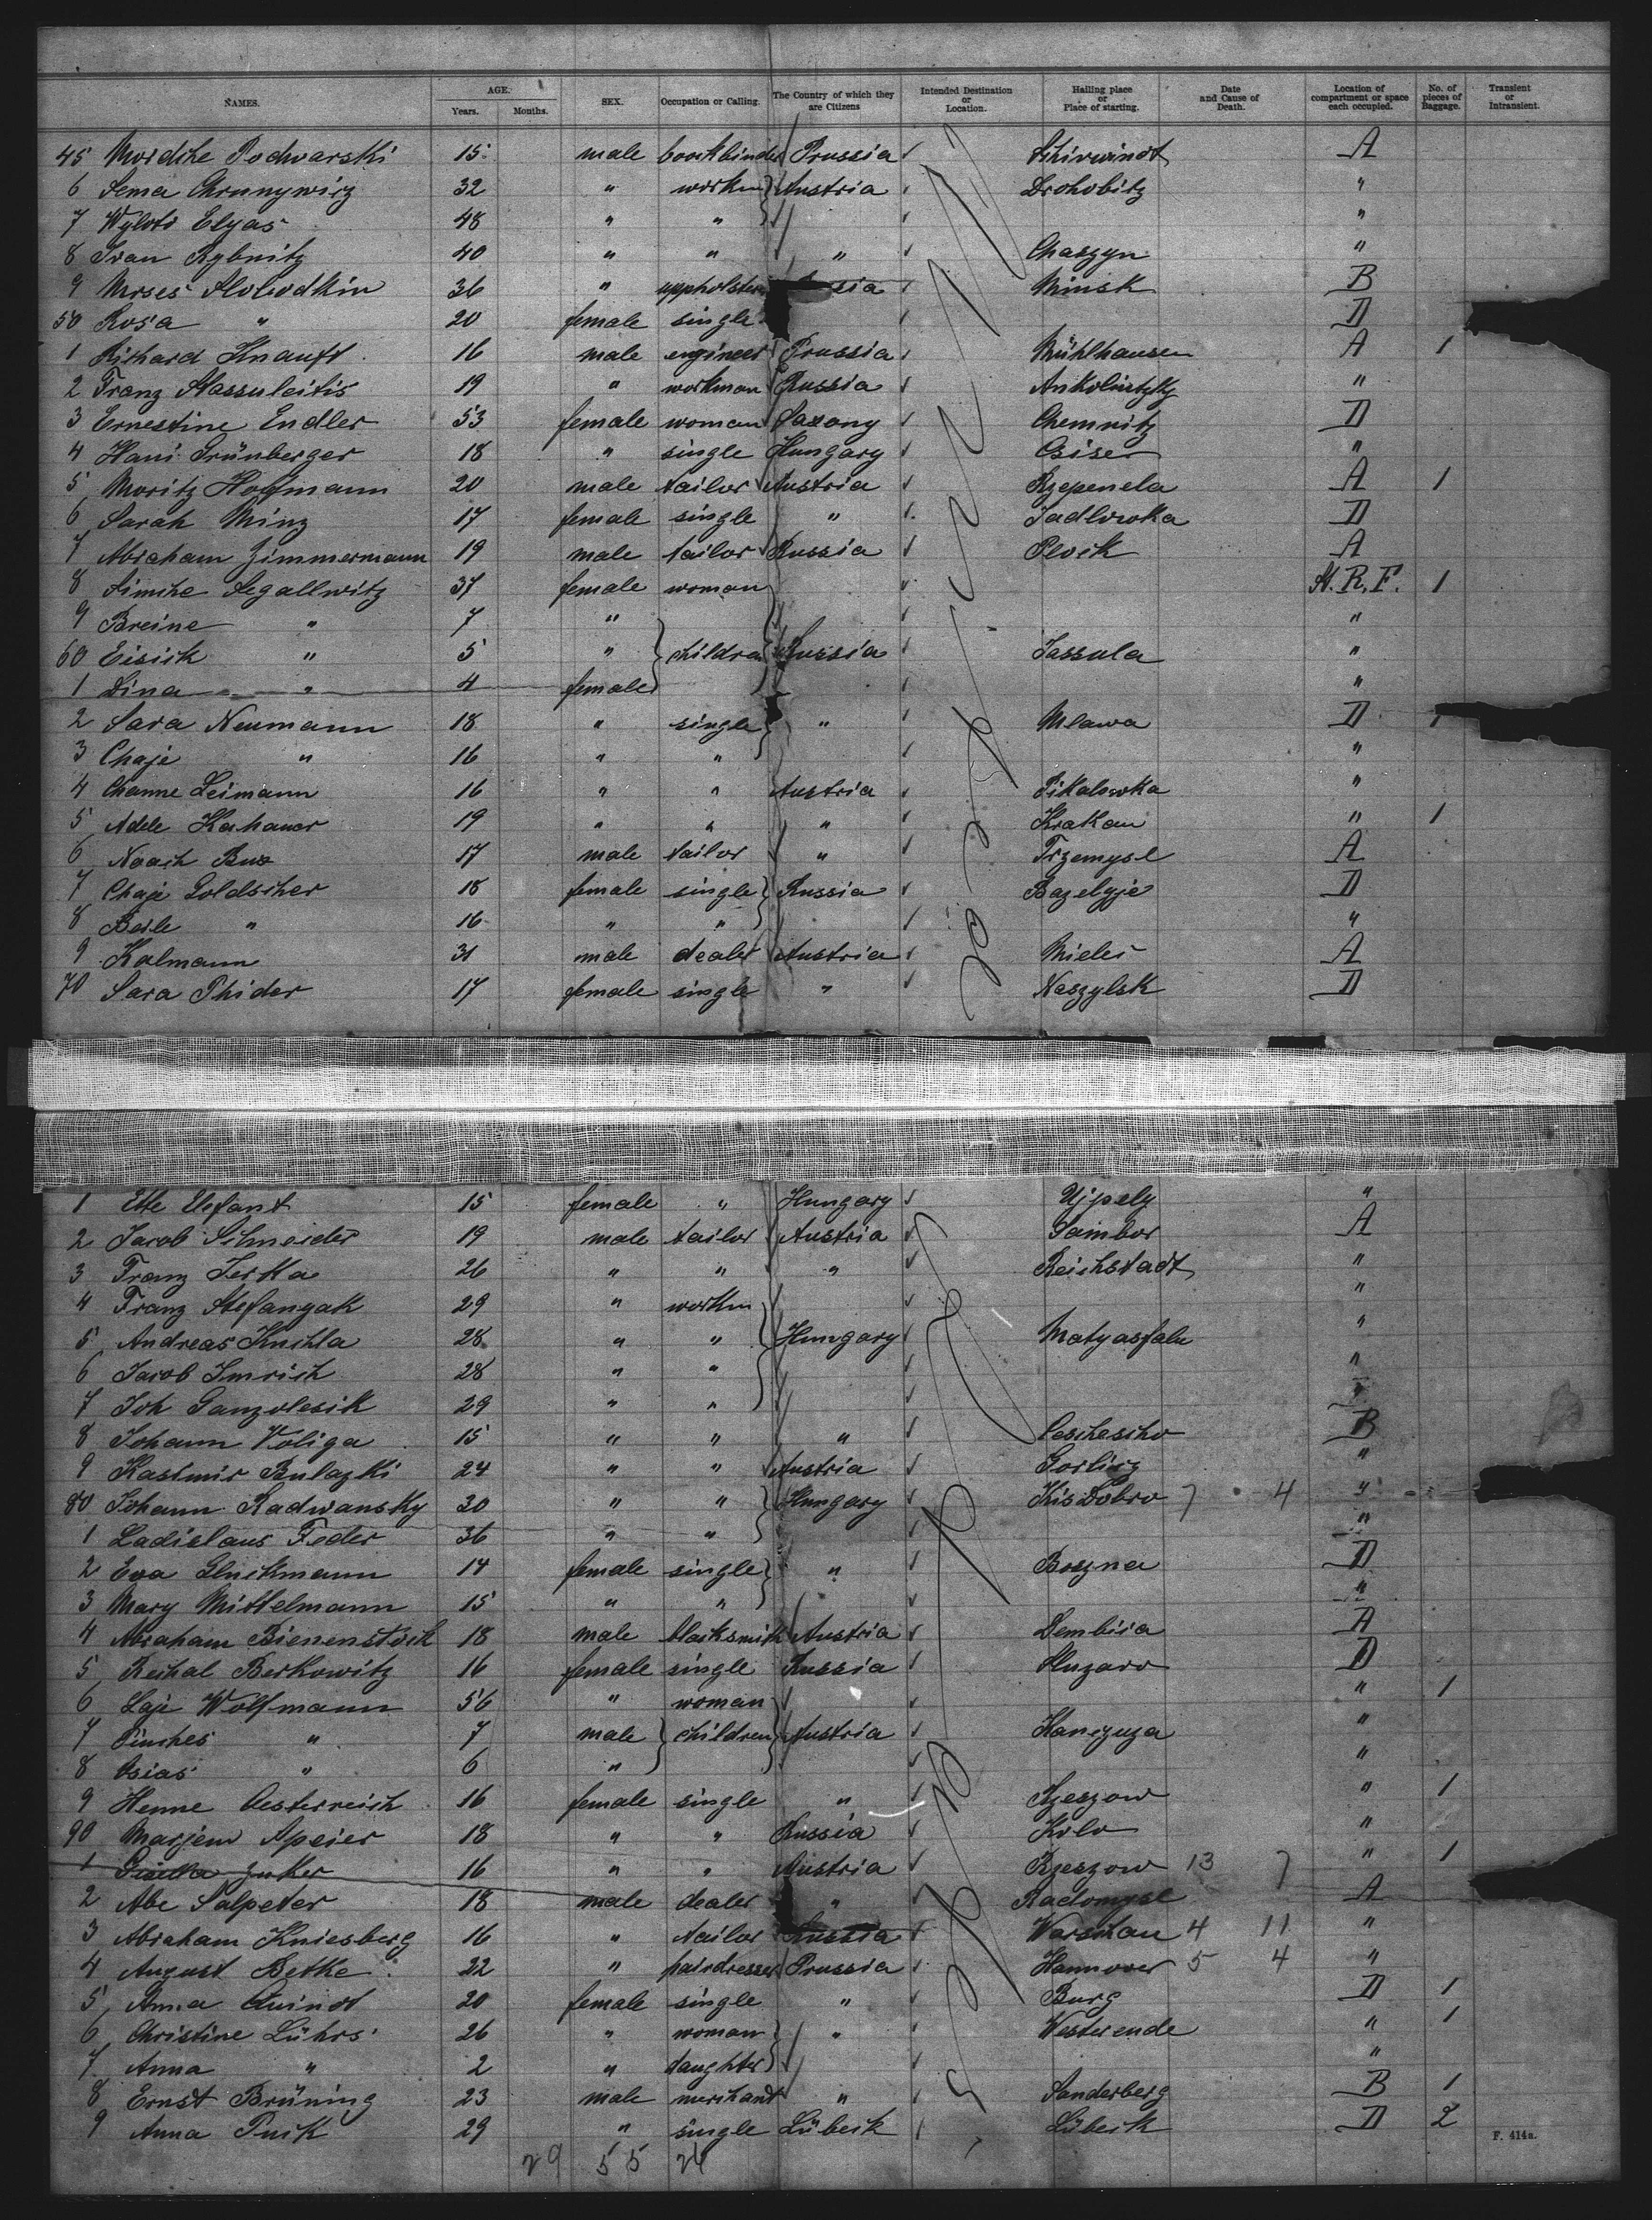 NAMES. AGE. Years. Months. SEX. Occupation or Calling. The Country of which they are Citizens Intended Destination or Location. Hailing place or Place of starting. Date and Cause of Death. Location of compartment or space each occupied. No. of pieces of Baggage. Transient or Intransient.
45 Mordche Podwarski 15 male bookbinder Prussia Schirwindt A
6 Sema 32 " workm Austria Drohobitz "
7 Elyas 48 " " "
8 Ivan Rybnitz 40 " " " Chaszyn "
9 Moses Slobodkin 36 " uppholsterer Minsk B
50 Rosa " 20 female single D
1 Richard Knauft 16 male engineer Prussia Mühlhausen A 1
2 Franz Stassuleitis 19 " workman Russia "
3 Ernestine Endler 53 female woman Saxony Chemnitz D
4 Hani Grünberger 18 " single Hungary Csiser "
5 Moritz Hoffmann 20 male tailor Austria Rzepenela A 1
6 Sarah Minz 17 female single " Sadlowka D
7 Abraham Zimmermann 19 male tailor Russia Plock A
8 Simche Segallwitz 37 female woman St. R. F. 1
9 Breine " 7 " "
60 Eisick " 5 " children Russia Jassula "
1 Dina " 4 female "
2 Sara Neumann 18 " single " Mlawa D 1
3 Chaje " 16 " " "
4 Channe Leimann 16 " " Austria Pikalowka "
5 Adele Kahaner 19 " " " Krakau " 1
6 Noach Bux 17 male tailor " Przemysl A
7 Chaje Goldscher 18 female single Russia Bazelyje D
8 Beile " 16 " " "
9 Kalmann 31 male dealer Austria Mielec A
70 Sara Phider 17 female single " Naszylsk D
1 Ette Elefant 15 female " Hungary Ujpely "
2 Jacob Schneider 19 male tailor Austria Sambor A
3 Franz Jerka 26 " " " Reichstadt "
4 Franz Stefanyak 29 " workm "
5 Andreas Kuchta 28 " " Hungary Matyasfalu "
6 Jacob Imrich 28 " " "
7 Joh Ganzolesik 29 " " "
8 Johann Voliga 15 " " " B
9 Kasimir Bulazki 24 " " Austria Gorlicz "
80 Johann Radwansky 30 " " Hungary Kis Dobro 7 4 "
1 Ladislaus Feder 36 " " "
2 Eva Gluckmann 14 female single " Boszna D
3 Mary Mittelmann 15 " " "
4 Abraham Bienenstock 18 male blacksmith Austria Dembica A
5 Reichal Berkowitz 16 female single Russia Sluzaro D
6 Laje Wolfmann 56 " woman " 1
7 Pinches " 7 male children Austria Kanczuza "
8 Osias " 6 " "
9 Henne Oesterreich 16 female single " Rzeszow " 1
90 Marjem Speier 18 " " Russia Kolo "
1 Gisella Zuker 16 " " Austria Rzeszow 13 7 " 1
2 Abe Salpeter 18 male dealer " Radomysl A
3 Abraham Kniesberg 16 " tailor Russia Warschau 4 11 "
4 August Betke 22 " hairdresser Prussia Hannover 5 4 "
5 Anna Quindt 20 female single " Burg D 1
6 Christine Lührs 26 " woman " Westerende " 1
7 Anna " 2 " daughter "
8 Ernst Brüning 23 male merchant " Sanderberg B 1
9 Anna Puck 29 " single Lübeck Lübeck D 2
29 55 24
F. 414a.